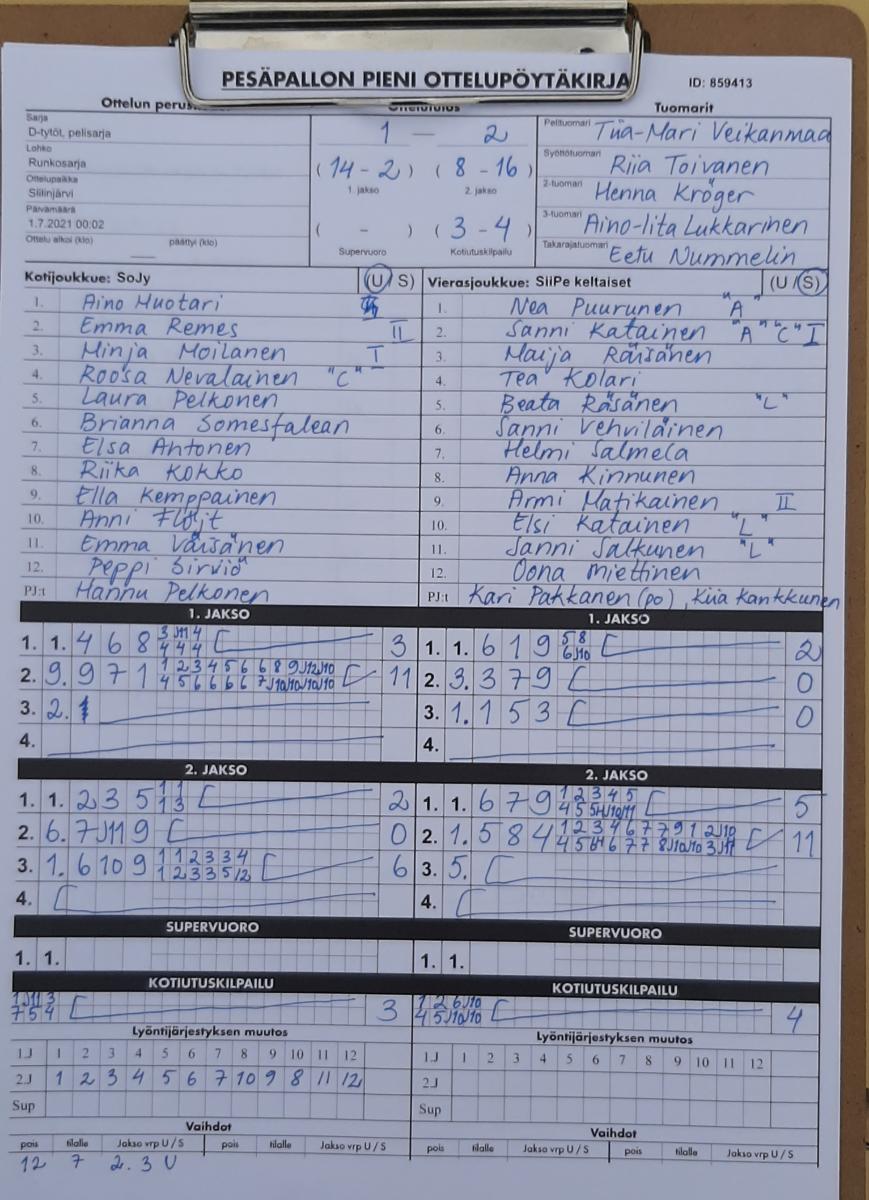 PESÄPALLON PIENI OTTELUPÖYTÄKIRJA
ID: 859413
Ottelun
Tuomarit
Sarja
D-tytöt, pelisarja
Lohko
Runkosarja
Ottelupaikka
Siilinjärvi
Päivämäärä
1.7.2021 00:02
Ottelu alkoi (klo) päättyi (klo)
1 — 2
( 14 - 2 ) ( 8 - 16 )
1. jakso 2. jakso
( - ) ( 3 - 4 )
Supervuoro Kotiutuskilpailu
Pelituomari Tiia-Mari Veikanmaa
Syöttötuomari Riia Toivanen
2-tuomari Henna Kröger
3-tuomari Aino-Iita Lukkarinen
Takarajatuomari Eetu Nummelin
Kotijoukkue: SoJy (U / S)
1. Aino Huotari
2. Emma Remes II
3. Minja Moilanen I
4. Roosa Nevalainen "C"
5. Laura Pelkonen
6. Brianna Somesfalean
7. Elsa Ahtonen
8. Riika Kokko
9. Ella Kemppainen
10. Anni Flöjt
11. Emma Väisänen
12. Peppi Sirviö
PJ:t Hannu Pelkonen
Vierasjoukkue: SiiPe keltaiset (U / S)
1. Nea Puurunen "A"
2. Sanni Katainen "A" "C" I
3. Maija Räisänen
4. Tea Kolari
5. Beata Räsänen "L"
6. Sanni Vehviläinen
7. Helmi Salmela
8. Anna Kinnunen
9. Armi Matikainen II
10. Elsi Katainen "L"
11. Sanni Salkunen "L"
12. Oona Miettinen
PJ:t Kari Pakkanen (po), Kiia Kankkunen
1. JAKSO
1. 1. 4 6 8 3 J11 4 3
4 4 4
2. 9. 9 7 1 1 2 3 4 5 6 6 8 9 J12 J10 11
3. 2.
4.
1. JAKSO
1. 1. 6 1 9 5 8 2
6 J10
2. 3. 3 7 9 0
3. 1. 1 5 3 0
4.
2. JAKSO
1. 1. 2 3 5 1 1 2
1 3
2. 6. 7 J11 9 0
3. 1. 6 10 9 1 1 2 3 3 4 6
1 2 3 3 5 12
4.
2. JAKSO
1. 1. 6 7 9 1 2 3 4 5 5
2. 1. 5 8 4 1 2 3 4 6 7 7 9 1 2 J10 11
3. 5.
4.
SUPERVUORO
1. 1.
SUPERVUORO
1. 1.
KOTIUTUSKILPAILU
1 J11 3 3
7 5 4
KOTIUTUSKILPAILU
1 2 6 J10 4
4 5 J10 J10
Lyöntijärjestyksen muutos
1.J 1 2 3 4 5 6 7 8 9 10 11 12
2.J 1 2 3 4 5 6 7 10 9 8 11 12
Sup
Lyöntijärjestyksen muutos
1.J 1 2 3 4 5 6 7 8 9 10 11 12
2.J
Sup
Vaihdot
pois tilalle Jakso vrp U / S pois tilalle Jakso vrp U / S
12 7 2. 3 U
Vaihdot
pois tilalle Jakso vrp U / S pois tilalle Jakso vrp U / S